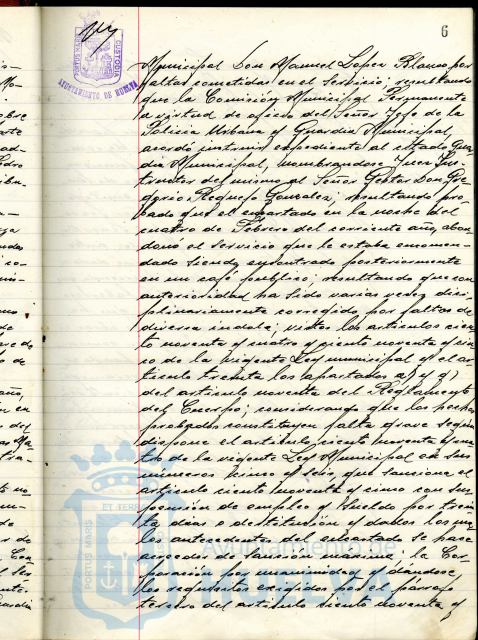 6
PORTUS MARIS
CUSTODIA
AYUNTAMIENTO DE HUELVA
Municipal Don Manuel Lopez Blanco por
faltas cometidas en el servicio; resultando
que la Comisión Municipal Permanente
a virtud de oficio del Señor Jefe de la
Policia Urbana y Guardia Municipal,
acordó instruir expediente al citado Guar
dia Municipal, nombrandose Juez Ins-
tructor del mismo al Señor Gestor Don Gre
gorio Requejo Gonzalez; resultando pro
bado que el encartado en la noche del
cuatro de Febrero del corriente año, aban
donó el servicio que le estaba encomen-
dado siendo encontrado posteriormente
en un café publico; resultando que con
anterioridad ha sido varias veces disci
plinariamente corregido por faltas de
diversa indole; vistos los articulos cien
to noventa y cuatro y ciento noventa y cin
co de la vigente Ley municipal y el ar-
ticulo treinta los apartados a) y g)
del articulo noventa del Reglamento
del Cuerpo; considerando que los hechos
probados constituyen falta grave segun
dispone el articulo ciento noventa y cua-
tro de la vigente Ley Municipal en sus
numeros cinco y seis, que sanciona el
articulo ciento noventa y cinco con sus
pensión de empleo y sueldo por trein
ta dias o destitución y dados los ma
los antecedentes del encartado se hace
acreedor a sanción maxima; la Cor-
poración por unanimidad y dándose
los requisitos exigidos por el párrafo
tercero del articulo ciento noventa y
ET TERRÆ
PORTUS MARIS
Ayuntamiento de
HUELVA